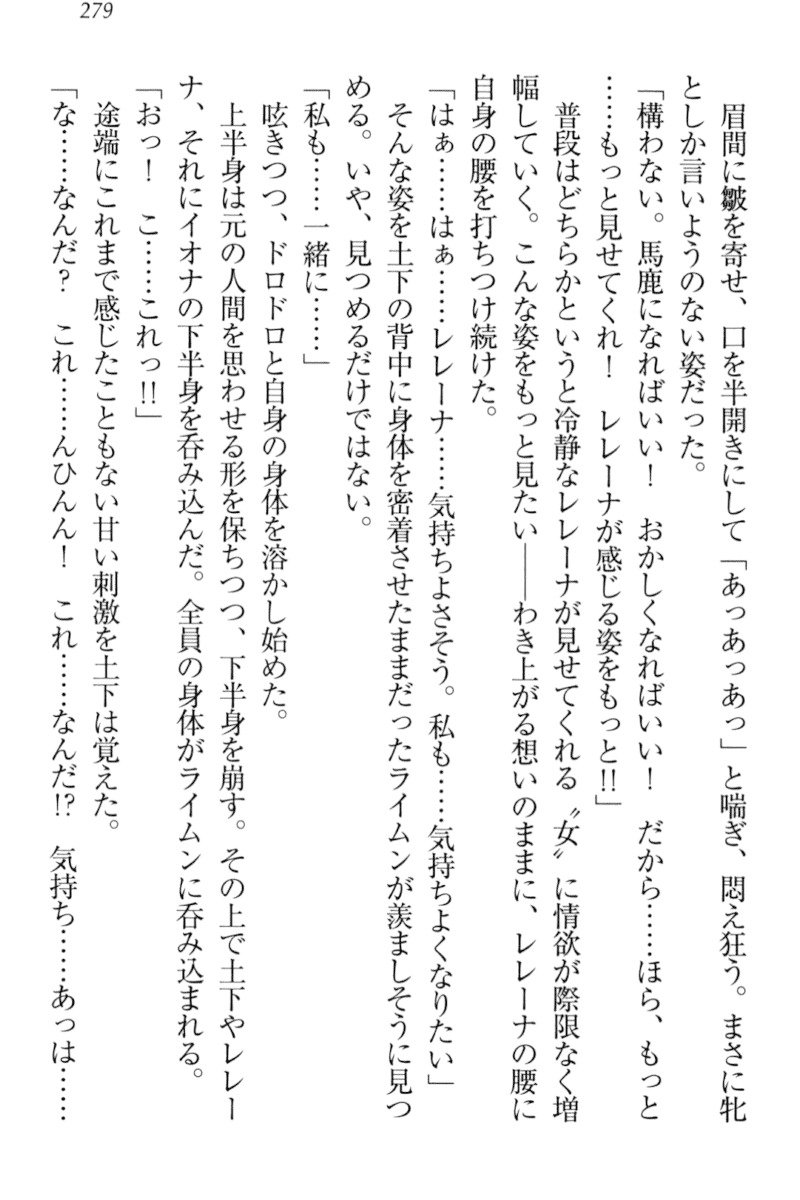 279
眉間に皺を寄せ、口を半開きにして「あっあっあっ」と喘ぎ、悶え狂う。まさに牝
としか言いようのない姿だった。
「構わない。馬鹿になればいい！　おかしくなればいい！　だから……ほら、もっと
……もっと見せてくれ！　レレーナが感じる姿をもっと!!」
普段はどちらかというと冷静なレレーナが見せてくれる〝女〟に情欲が際限なく増
幅していく。こんな姿をもっと見たい――わき上がる想いのままに、レレーナの腰に
自身の腰を打ちつけ続けた。
「はぁ……はぁ……レレーナ……気持ちよさそう。私も……気持ちよくなりたい」
そんな姿を土下の背中に身体を密着させたままだったライムンが羨ましそうに見つ
める。いや、見つめるだけではない。
「私も……一緒に……」
呟きつつ、ドロドロと自身の身体を溶かし始めた。
上半身は元の人間を思わせる形を保ちつつ、下半身を崩す。その上で土下やレレー
ナ、それにイオナの下半身を呑み込んだ。全員の身体がライムンに呑み込まれる。
「おっ！　こ……これっ!!」
途端にこれまで感じたこともない甘い刺激を土下は覚えた。
「な……なんだ？　これ……んひんん！　これ……なんだ!?　気持ち……あっは……